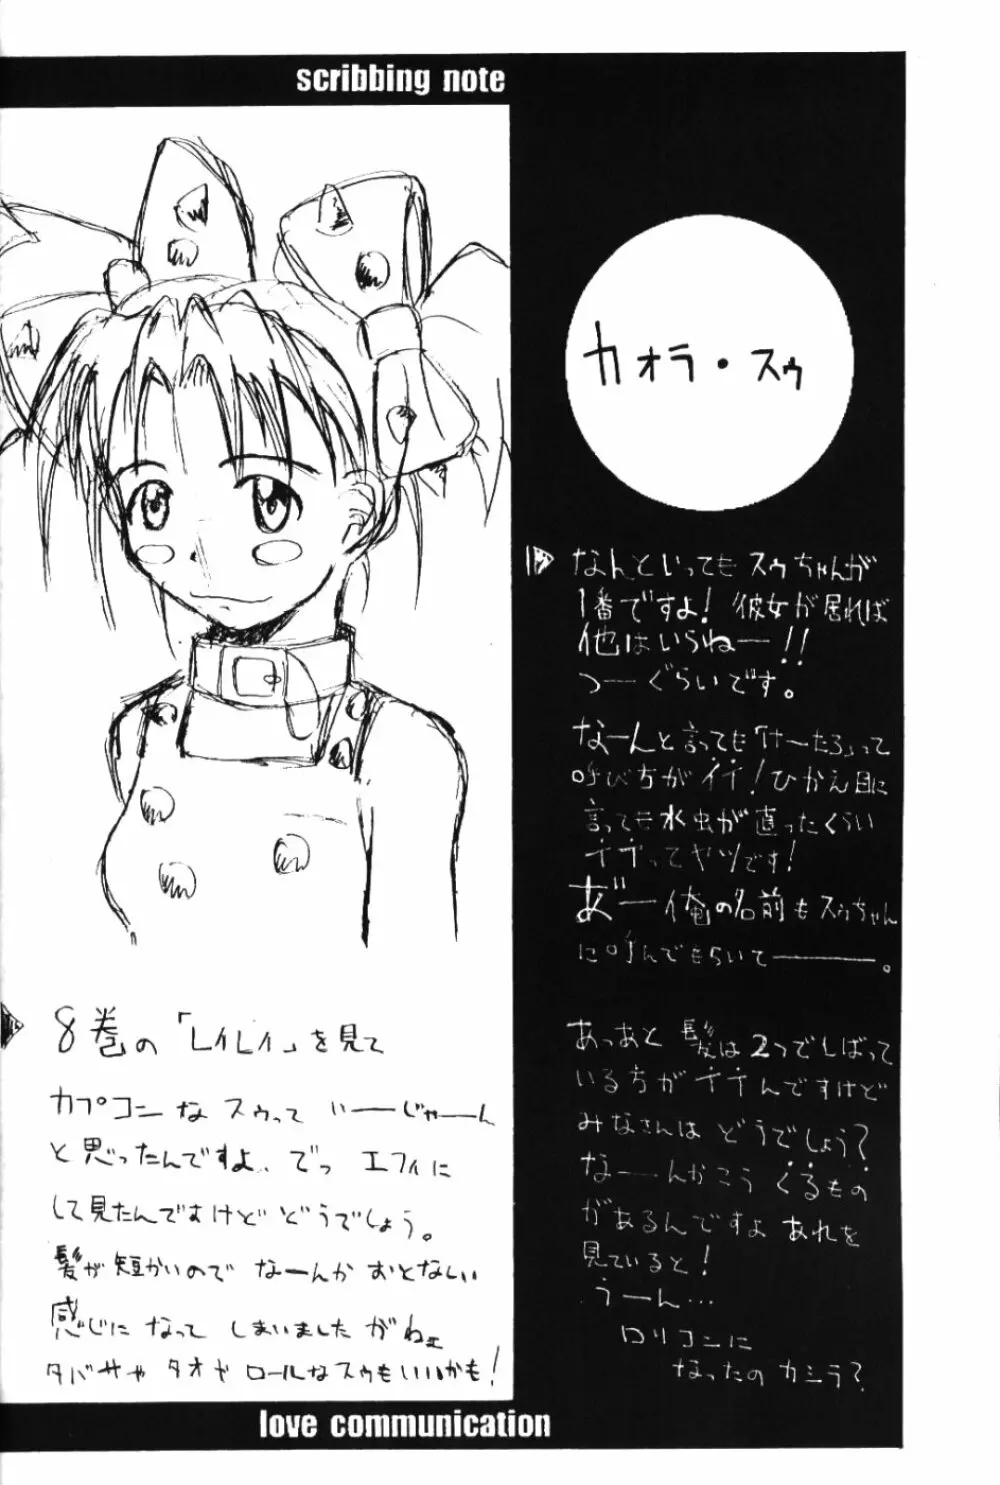 scribbing note
カオラ・スゥ
なんといってもスゥちゃんが
1番ですよ！彼女が居れば
他はいらねー!!
つーぐらいです。
なーんと言っても「けーたろ」って
呼び方がイイ！ひかえ目に
言っても水虫が直ったくらい
イイってヤツです！
あ゛ー俺の名前もスゥちゃん
に呼んでもらいてー。
あっあと髪は2つでしばって
いる方がイイんですけど
みなさんはどうでしょう？
なーんかこうくるもの
があるんですよあれを
見ていると！
うーん…
ロリコンに
なったのカシラ？
8巻の「レイレイ」を見て
カプコンなスゥって いーじゃーん
と思ったんですよ。でっ エフィに
して見たんですけどどうでしょう。
髪が短かいので なーんか おとなしい
感じになって しまいましたがねェ
タバサや タオや ロールなスゥもいいかも！
love communication